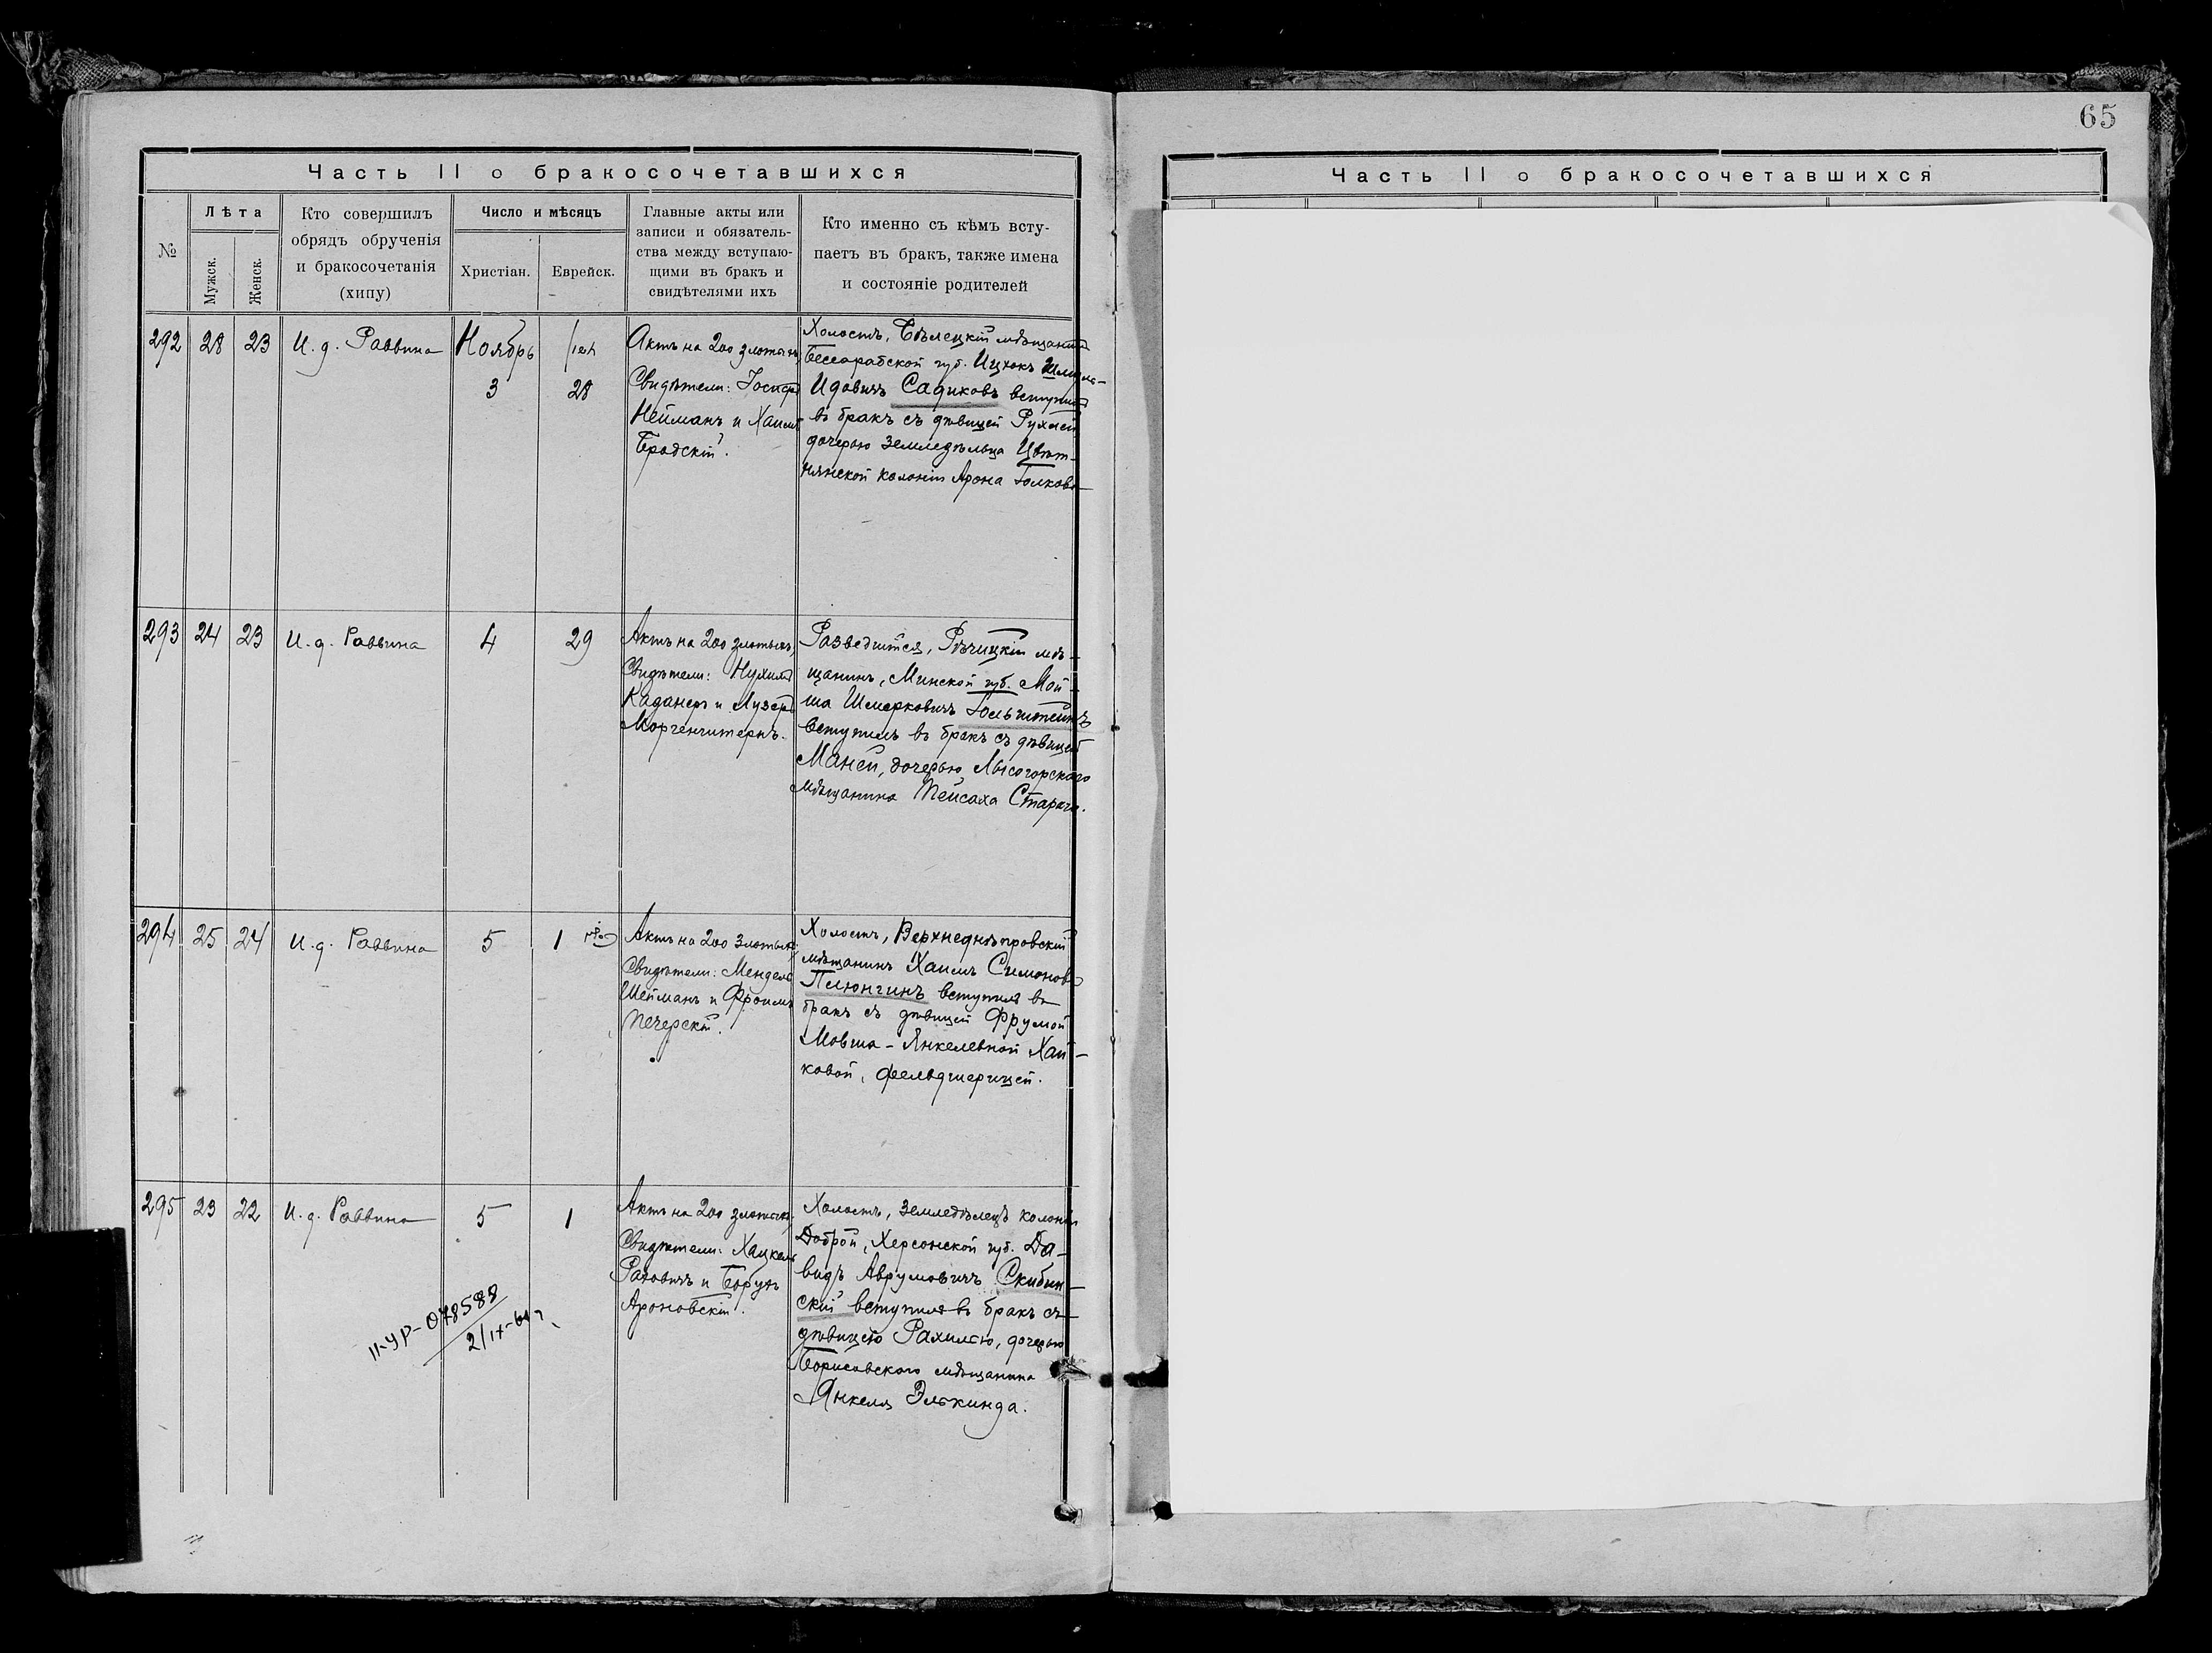 65
Часть II о бракосочетавшихся
№
Лѣта
Мужск.
Женск.
Кто совершилъ
обрядъ обрученія
и бракосочетанія
(хипу)
Число и мѣсяцъ
Христіан.
Еврейск.
Главные акты или
записи и обязатель-
ства между вступаю-
щими въ бракъ и
свидѣтелями ихъ
Кто именно съ кѣмъ всту-
паетъ въ бракъ, также имена
и состояніе родителей
292 28 23 И. д. Раввина
Ноябрь
3
28
Актъ на 200 злотыхъ,
Свидѣтели:
Нейманъ и Хаимъ
Бродскій.
Холостъ, Бѣлецкій мѣщанинъ
Бессарабской губ. Ицхокъ
Идовичъ Садиковъ вступилъ
въ бракъ съ дѣвицей Рухлей
дочерью земледѣльца Цвѣт-
нянской колоніи Арона
293 24 23 И. д. Раввина 4 29
Актъ на 200 злотыхъ,
Свидѣтели: Нухимъ
Каданеръ и Лузеръ
Моргенштернъ.
Разведшійся, Рѣчицкій мѣ-
щанинъ, Минской губ. Мой-
ша Шмерковичъ Гольштейнъ
вступилъ въ бракъ съ дѣвицей
Маней, дочерью Лысогорскаго
мѣщанина Пейсаха
294 25 24 И. д. Раввина 5 1
Актъ на 200 злотыхъ,
Свидѣтели: Мендель
Шейманъ и Фроимъ
Печерскій.
Холостъ, Верхнеднѣпровскій
мѣщанинъ Хаимъ Симоновъ
Плюнгинъ вступилъ въ
бракъ съ дѣвицей Фрумой
Мовша-Янкелевной Хай-
ковой, фельдшерицей.
295 23 22 И. д. Раввина 5 1
Актъ на 200 злотыхъ.
Свидѣтели: Хацкель
Раховичъ и Борухъ
Ароновскій.
Холостъ, земледѣлецъ колоніи
Доброй, Херсонской губ. Да-
видъ Аврумовичъ Скибин-
скій вступилъ въ бракъ съ
дѣвицею Рахилью, дочерью
Борисовскаго мѣщанина
Янкеля Элькинда.
II-УР-078588
2/IX-
Часть II о бракосочетавшихся